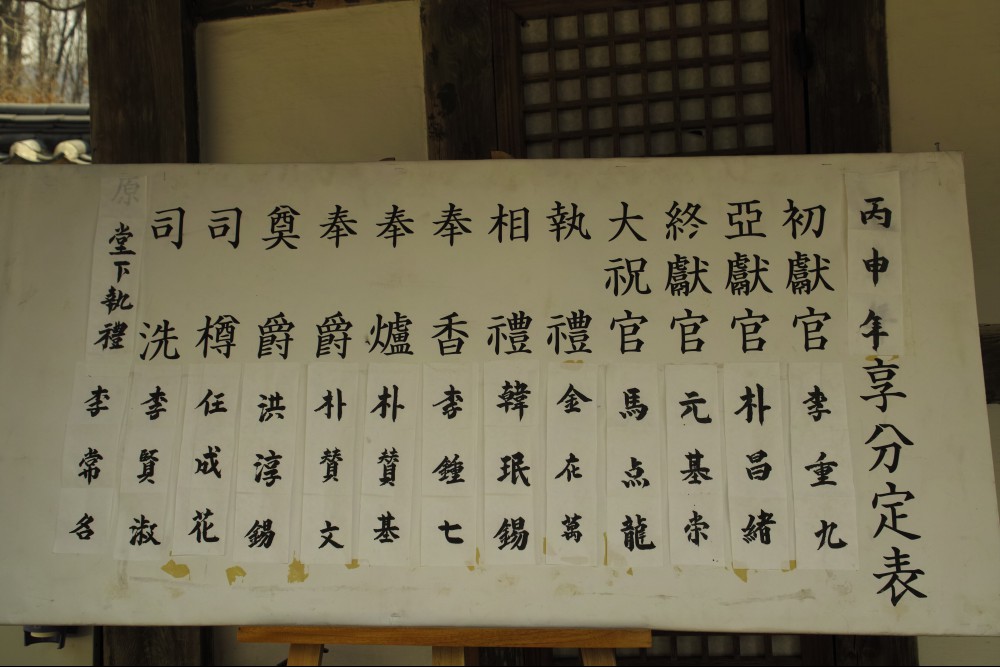 丙申年享分定表
初獻官 李重九
亞獻官 朴昌緖
終獻官 元基崇
大祝官 馬点龍
執禮 金在萬
相禮 韓珉錫
奉香 李鍾七
奉爐 朴贊基
奉爵 朴贊文
奠爵 洪淳錫
司樽 任成花
司洗 李賢淑
堂下執禮 李常名
原